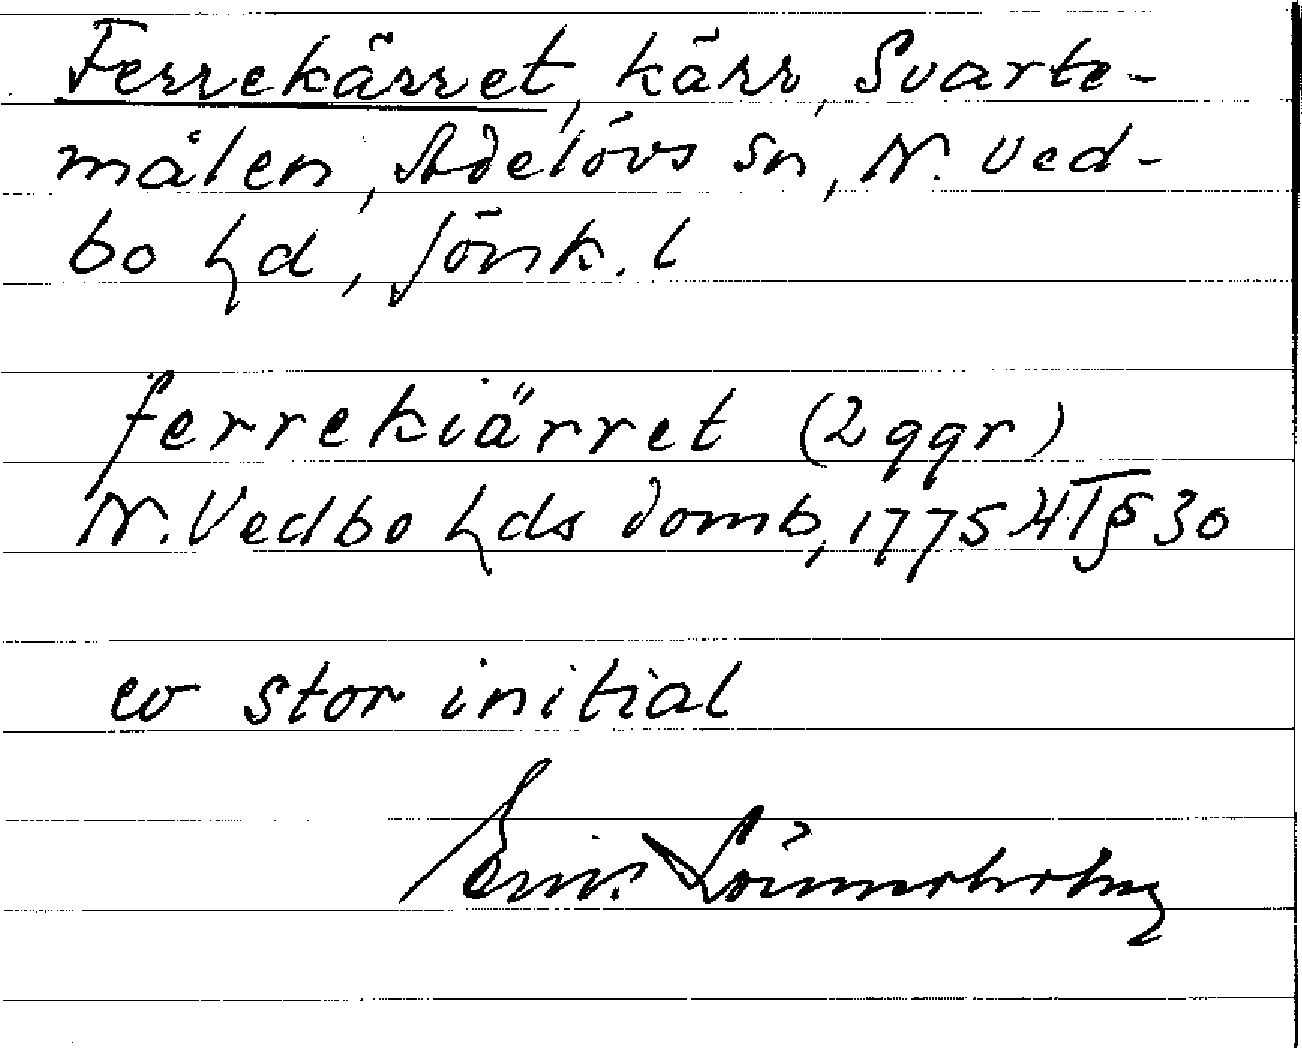 Ferrekärret, kärr, Svarte-
målen, Adelövs sn, N. Ved-
bo hd, Jönk. l
ferrekiärret (2 ggr)
N. Vedbo hds domb, 1775 HT § 30
ev stor initial